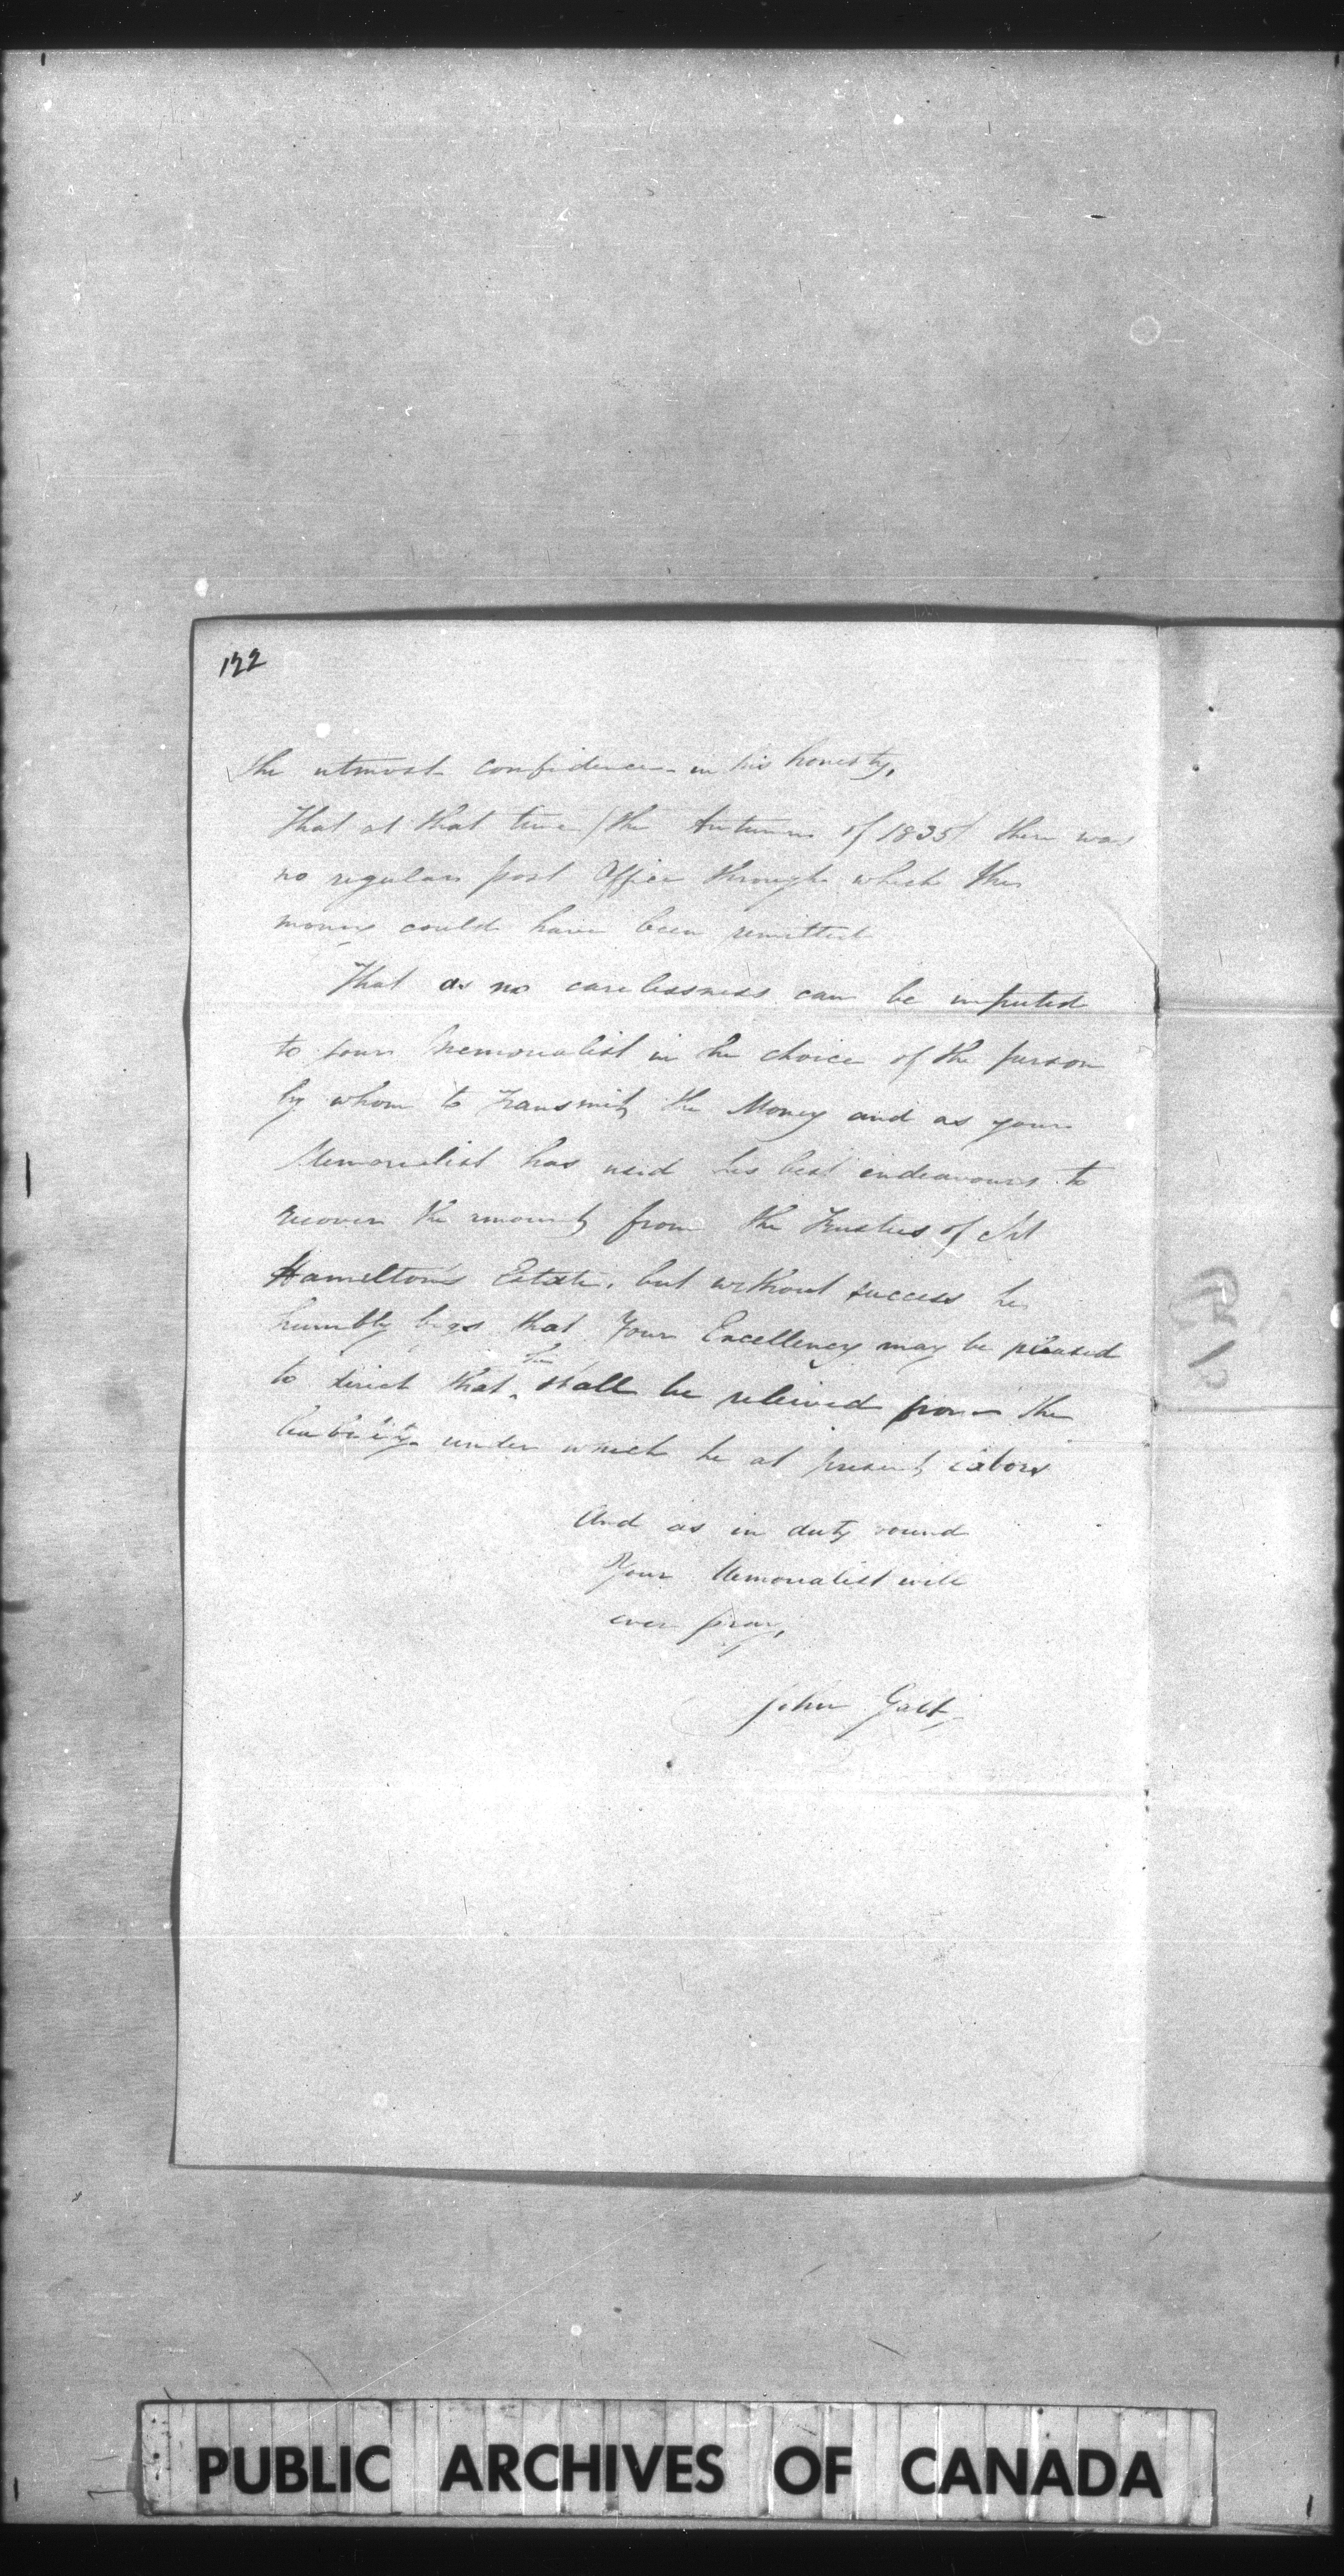 122
the utmost confidence in his honesty,
That at that time (the Autumn of 1835) there was
no regular post Office through which the
money could have been remitted
That as no carelessness can be imputed
to your Memorialist in the choice of the person
by whom to transmit the Money and as your
Memorialist has used his best endeavours to
recover the amount from the Trustees of
Hamelton's Estate, but without success he
humbly begs that Your Excellency may be pleased
to direct that he shall be releived from the
liability under which he at present labors
And as in duty bound
Your Memorialist will
ever pray,
John Galt
PUBLIC ARCHIVES OF CANADA